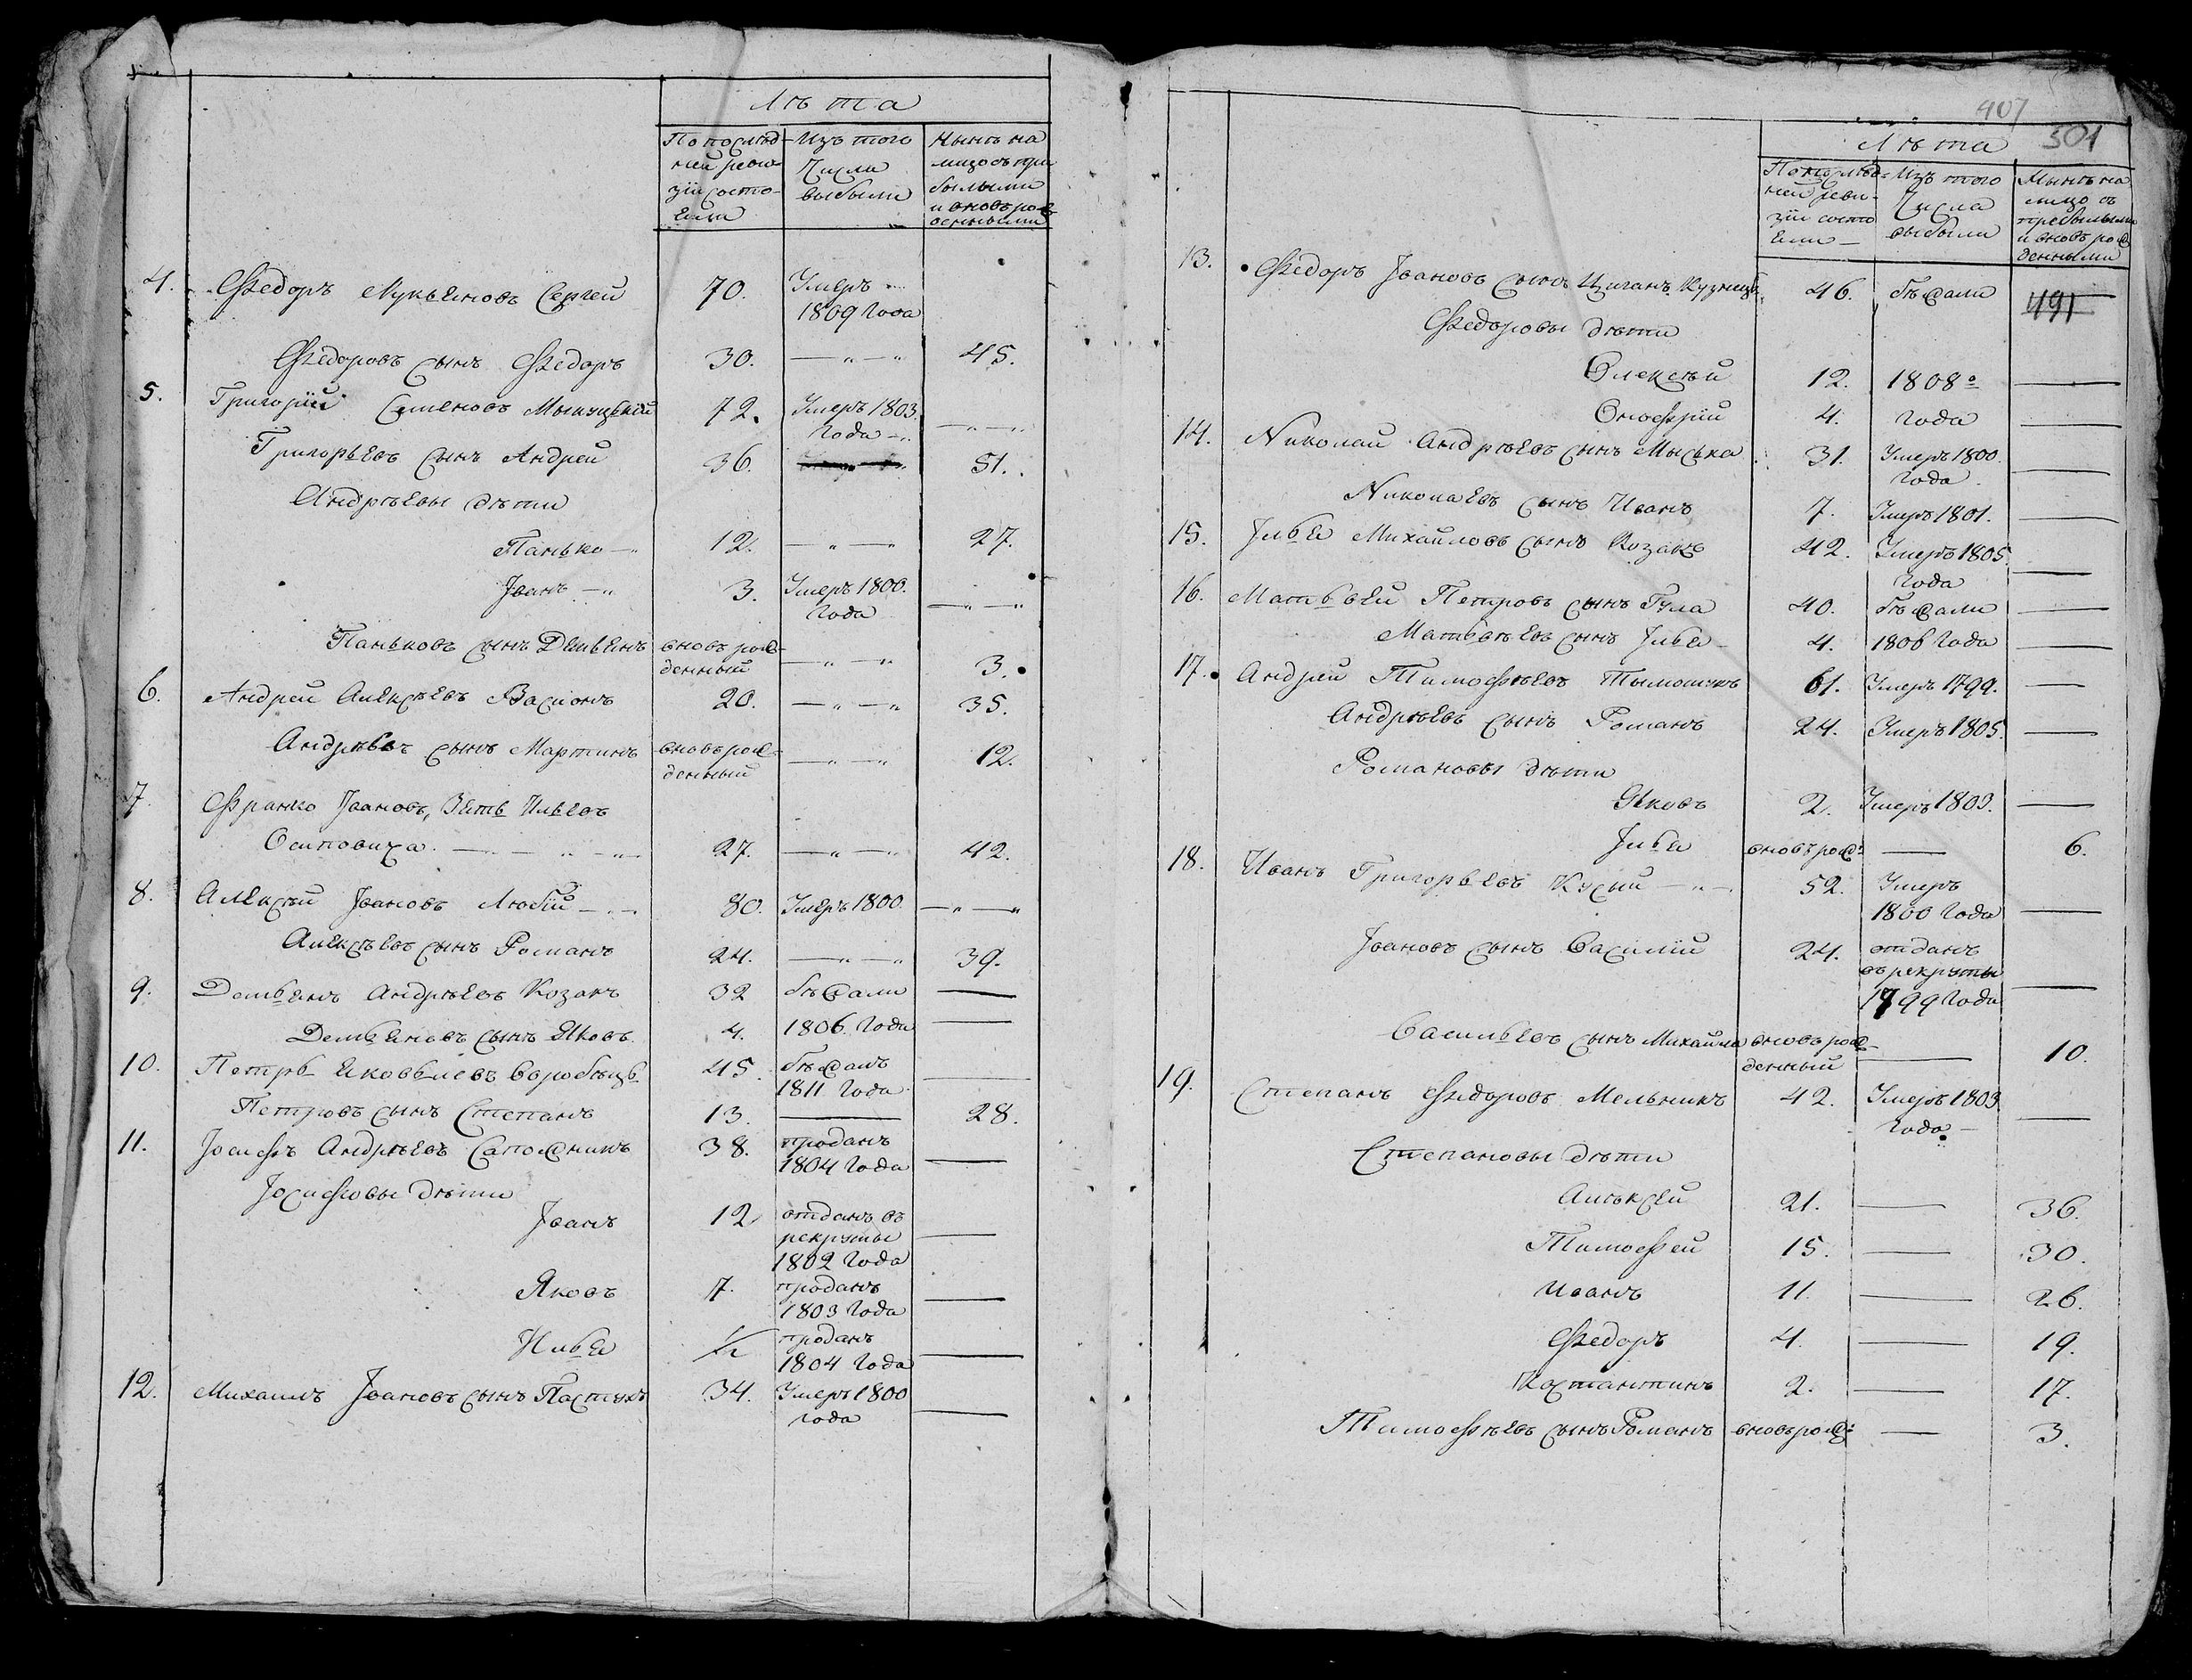 Лѣта
По послѣд-
ней реви-
зіи состо-
яли
Изъ того
Числа
выбыли
Нынѣ на
лицо съ при
былыми
и вновь рож
денными
4. Федоръ Лукьяновъ Сергей 70. Умеръ
1809 Года
Федоровъ сынъ Федоръ 30. — „ — „ 45.
5. Григорій Семеновъ 72. Умеръ 1803.
Года — „ — „ —
Григорьевъ сынъ Андрей 36. 51.
Андрѣевы дѣти
Панько — „ 12. — „ — 27.
Іванъ — „ 3. Умеръ 1800.
Года — „ — „
Паньковъ сынъ Демьянъ вновь рож-
денный — „ — „ 3.
6. Андрей Алексѣевъ 20. — „ — „ 35.
Андрѣевъ сынъ Мартинъ вновь рож-
денный — „ — „ 12.
7. Франко Івановъ, Зять Ильевъ
Осиповича. 27. — „ — „ 42.
8. Алексѣй Івановъ Любій — „ — 80. Умеръ 1800. — „ — „
Алексѣевъ сынъ Романъ 24. — „ — „ 39.
9. Демьянъ Андрѣевъ Козакъ 32 бѣжали —
Демьяновъ сынъ Яковъ. 4. 1806. Года —
10. Петръ Яковьлевъ Воробѣцъ. 45. бѣжалъ
1811 Года —
Петровъ сынъ Степанъ 13. — 28.
11. Іосифъ Андрѣевъ Сапожникъ 38. проданъ
1804 Года —
Іосифовы дѣти
Іванъ 12 отданъ въ
рекруты —
1802 Года
Яковъ 7. проданъ
1803 Года —
Илья ½ проданъ
1804 Года —
12. Михаилъ Івановъ сынъ Пастухъ 34. Умеръ 1800
года —
407
501
Лѣта
По послѣд-
ней реви-
зіи состо
яли —
Изъ того
Числа
выбыли
Нынѣ на
лицо съ
прибылыми
и вновь рож
денными
13. Федоръ Івановъ сынъ Циганъ Кузнецъ. 46. бѣжали 491
Федоровы дѣти
Олексѣй 12. 1808º —
Онофрій 4. года —
14. Николай Андрѣевъ сынъ Миська 31. Умеръ 1800.
Года. —
Николаевъ сынъ Иванъ 7. Умеръ 1801. —
15. Ілья Михайловъ сынъ Козакъ 42. Умеръ 1805.
Года —
16. Матьвѣй Петровъ сынъ Гула 40. бѣжали —
Матьвѣевъ сынъ Ілья — 4. 1806 Года —
17. Андрей Тимофѣевъ Тымошукъ 61. Умеръ 1799. —
Андрѣевъ сынъ Романъ 24. Умеръ 1805. —
Романовы дѣти
Яковъ 2. Умеръ 1803. —
Ілья вновь рож: — 6.
18. Иванъ Григорьевъ Кусый — „ — 52. Умеръ
1800 Года —
Івановъ сынъ Василій 24. отданъ
въ рекруты
1799 Года —
Васильевъ сынъ Михайла вновь рож-
денный — 10.
19. Степанъ Федоровъ Мельникъ 42. Умеръ 1803
Года — —
Степановы дѣти
Алѣксей 21. — 36.
Тимофей 15. — 30.
Иванъ 11. — 26.
Федоръ 4. — 19.
Костантинъ 2. — 17.
Тимофѣевъ сынъ Романъ вновь рож: — 3.